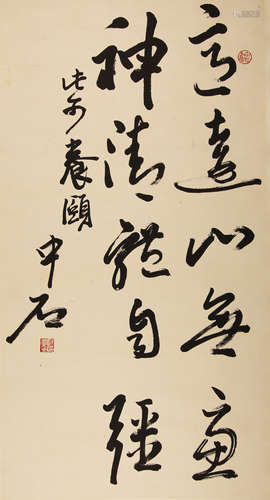 意遠心無慮
神清體自彊
此養頤
中石